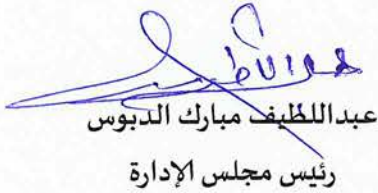 عبداللطيف مبارك الدبوس
رئيس مجلس الإدارة